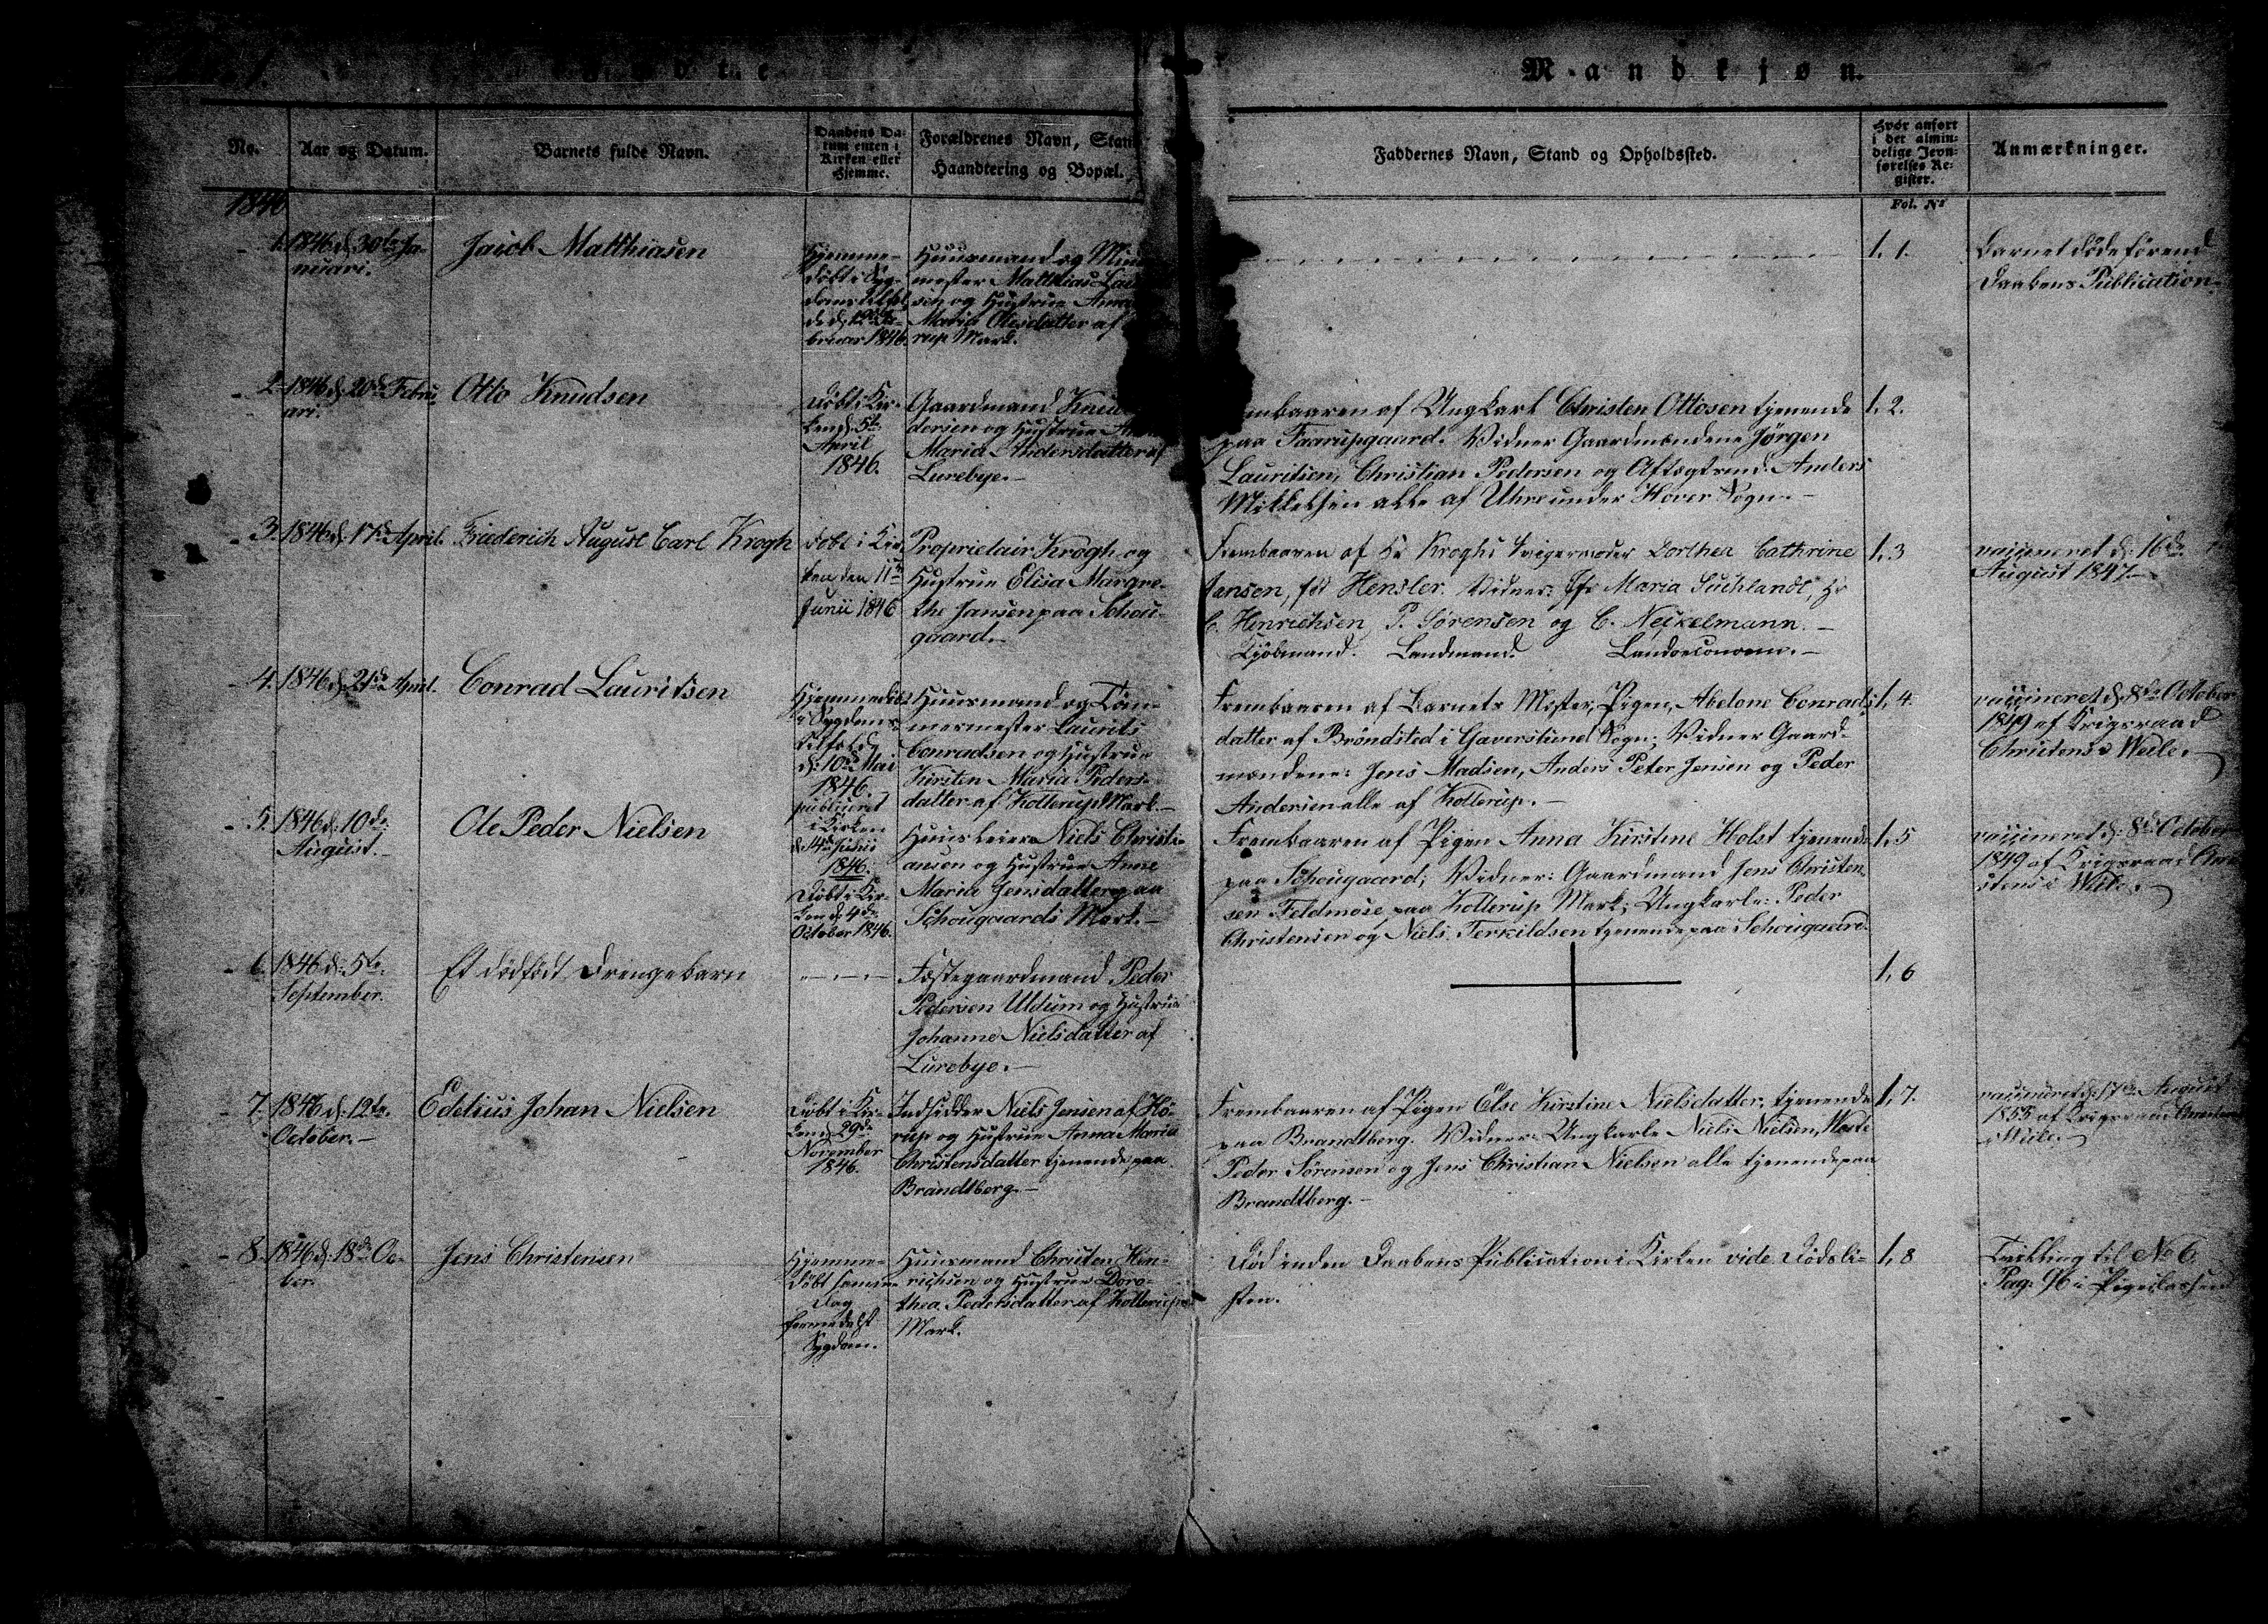 Mandkjøn.
No.
Aar og Datum.
Barnets fulde Navn.
Daabens Da-
tum enten i
Kirken eller
Hjemme.
Forældrenes Navn, Stand
Haandtering og Bopæl.
Faddernes Navn, Stand og Opholdssted.
Hvor anført
i det almin-
delige Jevn-
førelses Re-
gister.
Anmærkninger.
Fol. No
1846
1. 1846 d. 30te Ja-
nuari.
Jacob Matthiasen
Hjemme-
døbt i Syg-
doms Tilfæl-
de d.
bruar 1846.
Huusmand og
mester Matthias
sen og Hustrue Anna
Maria Olesdatter af
rup Mark.
1. 1.
Barnet døde førend
Daabens Publication.
2. 1846 d. 20de Febru-
ari.
Otto Knudsen
Døbt i Kir-
ken d. 5te
April
1846.
Gaardmand
dersen og Hustrue
Maria Andersdatter af
Lurebye.
embaaren af Ungkarl Christen Ottosen tjenende
paa Faarupgaard. Vidner Gaardmændene Jørgen
Lauritsen, Christian Pedersen og Aftægtsmd. Anders
Mikkelsen alle af Uhre under Høver Sogn.
1. 2.
3. 1846 d. 17de April.
Friederich August Carl Krogh
døbt i Kir-
ken den 11te
Junii 1846
Proprietair Krogh og
Hustrue Elisa Margre-
the Jansen paa Schou-
gaard.
Frembaaren af Hr Kroghs Svigermoder Dorthea Cathrine
Jansen, fød Hensler. Vidner: Jfr Maria Suchlandt, Hr
C. Henrichsen, P. Sørensen og C. Neckelmann.
Kjøbmand. Landmand. Landoeconom.
1, 3
vaccineret d. 16de
August 1847
4. 1846 d. 21de April.
Conrad Lauritsen
Hjemmedøbt
i Sygdoms-
tilfælde
d. 10de Mai
1846.
publiceret
i Kirken
d. 14de Junii
1846.
Huusmand og Tøm-
mermester Laurits
Conradsen og Hustrue
Kirsten Maria Peders-
datter af Kollerup Mark.
Frembaaren af Barnets Moster, Pigen, Abelone Conrads-
datter af Brøndsted i Gaverslund Sogn; Vidner Gaard-
mændene: Jens Madsen, Anders Peter Jensen og Peder
Andersen alle af Kollerup.
1, 4.
vaccineret d. 8de October
1849 af Krigsraad
Christens i Weile.
5. 1846 d. 10de
August.
Ole Peder Nielsen
Døbt i Kir-
ken d. 4de
October 1846.
Huusleier Niels Christi-
ansen og Hustrue Anne
Marie Jensdatter paa
Schougaards Mark.
Frembaaren af Pigen Anna Kirstine Holst tjenende
paa Schougaard; Vidner: Gaardmand Jens Christen-
sen Feldmose paa Kollerup Mark; Ungkarle: Peder
Christensen og Niels Terkildsen tjenende paa Schougaard.
1, 5
vaccineret d. 8de October
1849 af Krigsraad Chri
stens i Weile.
6. 1846 d. 5te
September.
Et dødfødt Drengebarn
Fæstegaardmand Peder
Pedersen Uldum og Hustrue
Johanne Nielsdatter af
Lurebye.
1, 6
7. 1846 d. 12te
October.
Edelius Johan Nielsen
Døbt i Kir-
ken d. 29de
November
1846.
Indsidder Niels Jensen af Hø-
rup og Hustrue Anna Maria
Christensdatter tjenende paa
Brandtberg.
Frembaaren af Pigen Else Kirstine Nielsdatter, tjenende
paa Brandtberg. Vidner Ungkarle Niels Nielsen,
Peder Sørensen og Jens Christian Nielsen alle tjenende paa
Brandtberg.
1, 7.
vaccineret d. 17de August
1855 af Krigsraad
i Weile.
8. 1846 d. 18de Oc-
ber.
Jens Christensen
Hjemme-
døbt samme
Dag
formedelst
Sygdom.
Huusmand Christen Hen-
richsen og Hustrue Doro-
thea Pedersdatter af Kollerup
Mark.
Død inden Daabens Publication i Kirken vide Dødsli-
sten.
1, 8
Tvilling til No 6.
Pag. 96 i